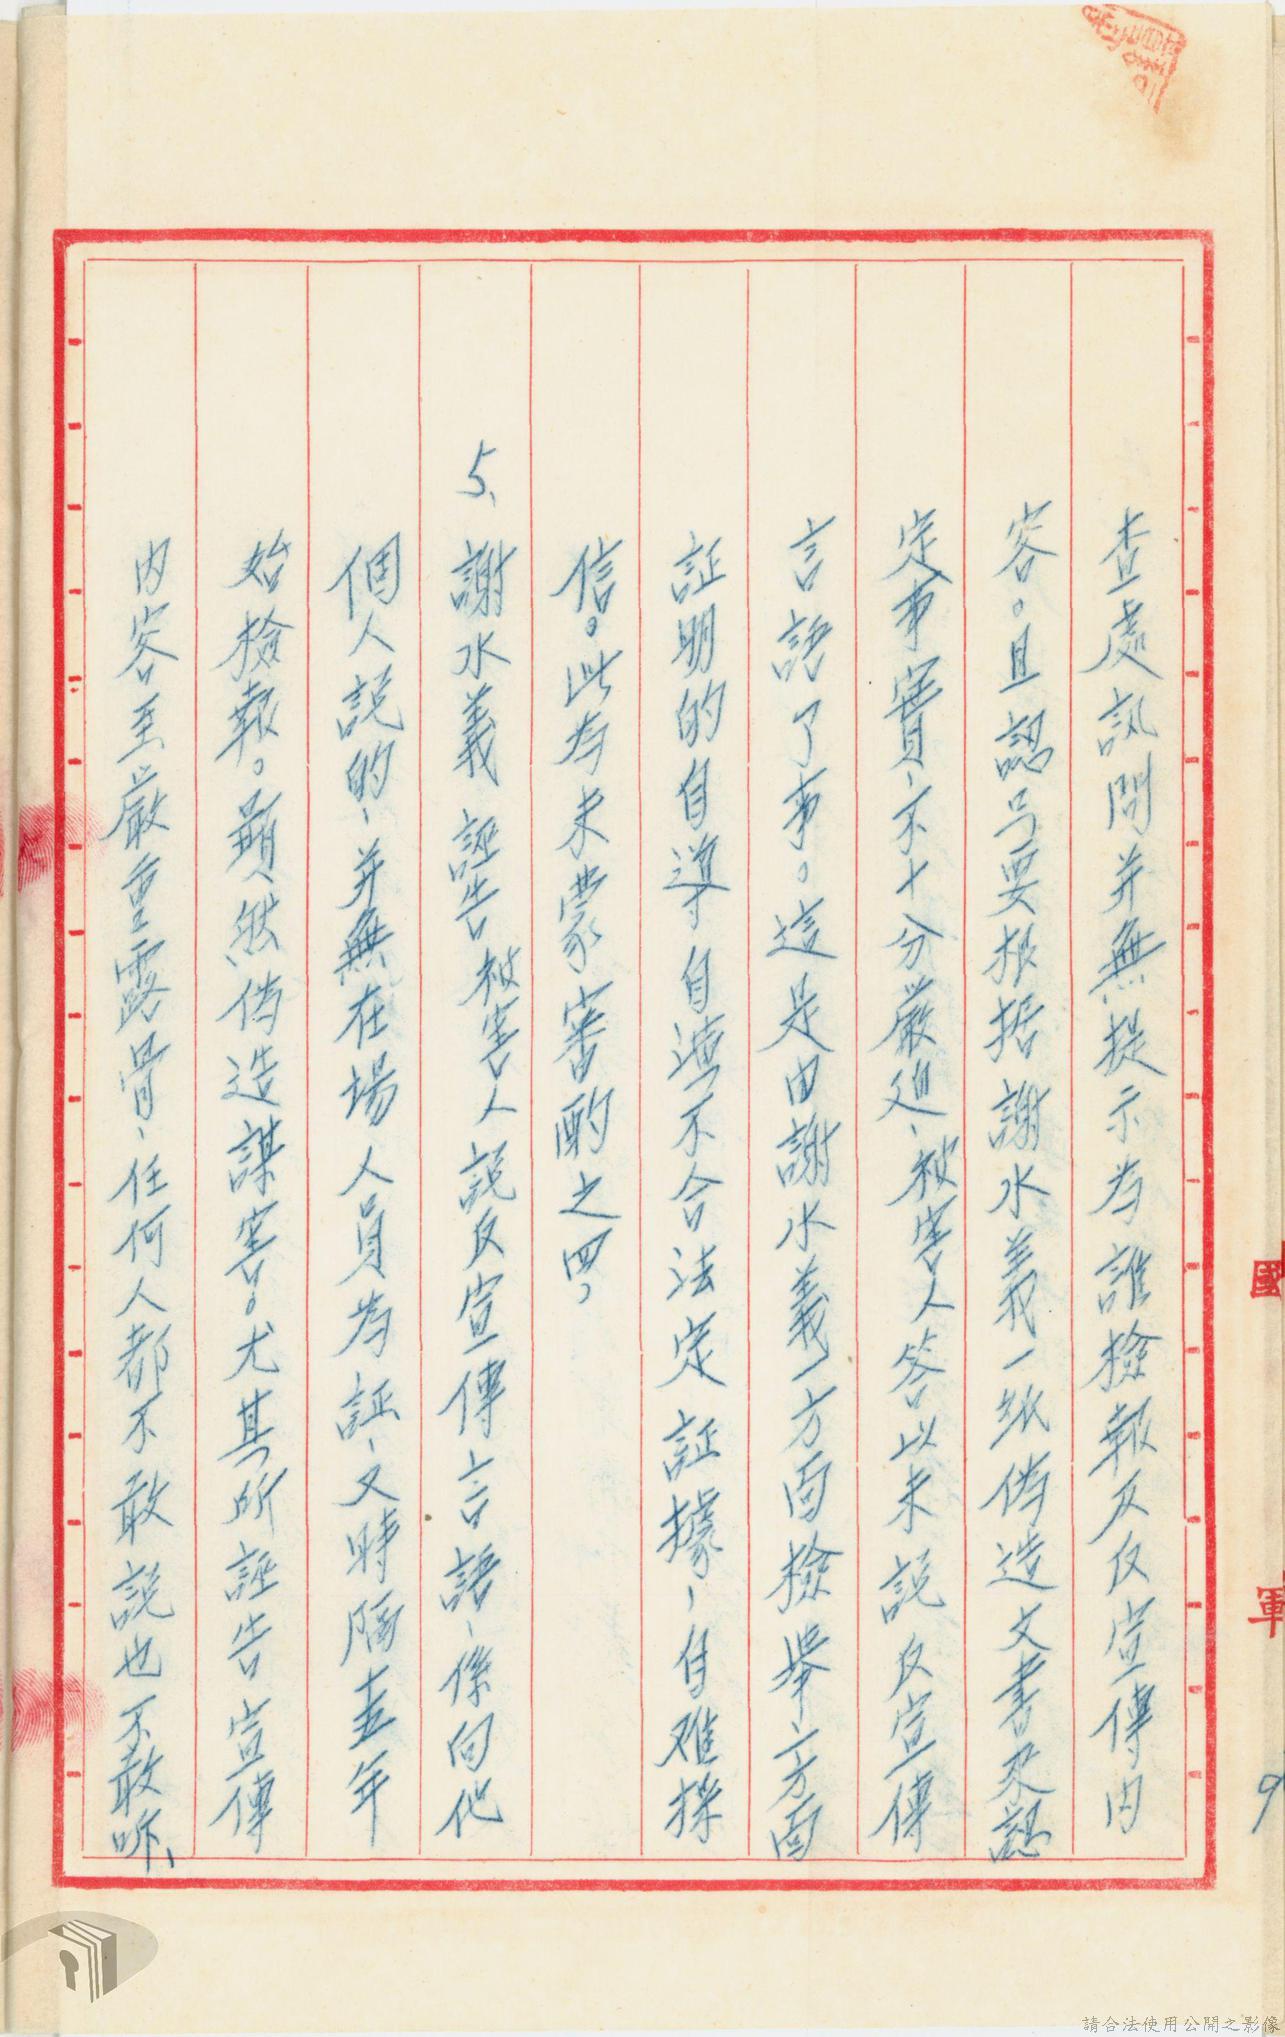 查處訊問并無提示為誰檢報及反宣傳内
容。且認弓要根据謝水義一紙偽造文書來認
定事實、不十分嚴廹、被害人答以未說反宣傳
言語了事。這是由謝水義一方面檢舉一方面
証明的自導自演不合法定証據、自难採
信。此為未蒙審酌之四、
5、謝水義誣告被害人説反宣傳言語、係向他
個人說的、并無在場人員為証、又時隔壹年
始檢報。顯然偽造謀害。尤其所誣告宣傳
内容至嚴重露骨、任何人都不敢說也不敢听、
國
軍
9
請合法使用公開之影像